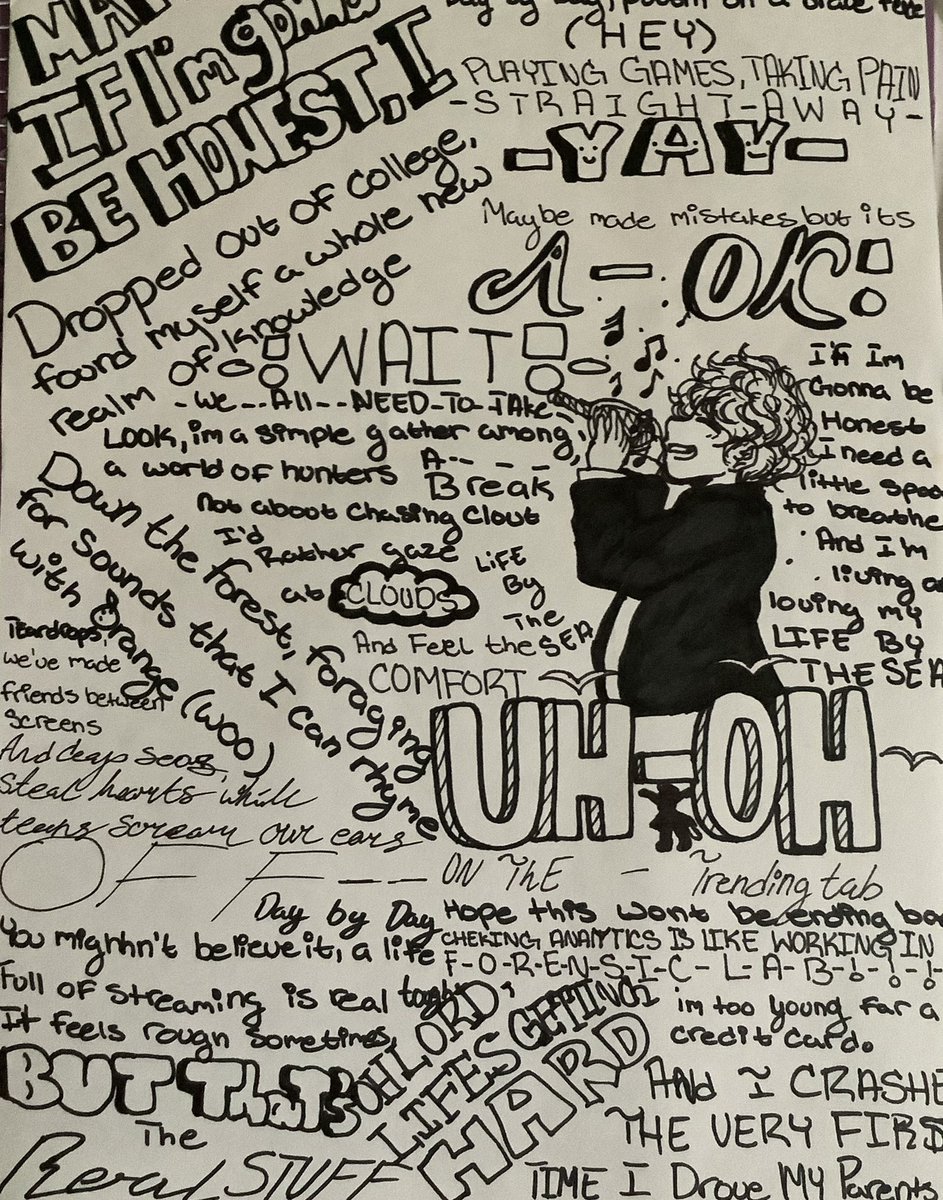 MA
IF I'm gonna
BE HONEST, I
Dropped out of college,
found myself a whole new
realm of knowledge
Day by Day, on a
(HEY)
PLAYING GAMES, TAKING PAIN
-STRAIGHT-AWAY-
-YAY-
Maybe made mistakes but its
A-OK!
-!WAIT!-
-We--All--NEED-To-TAKe-
A-- - -
Break
Look, im a simple gather among,
a world of hunters
Not about chasing Clout
I'd
Rather gaze
at CLOUDS
And Feel the SEA
COMFORT
LiFE
By
The
If Im
Gonna be
Honest
I need a
little spac
to breathe
And I'm
living a
loving my
LIFE BY
THE SEA
Down the forest, foraging
for sounds that I can rhyme
with Orange (woo)
Teardrops,
we've made
friends between
screens
And deap seas,
steal hearts while
teans scream our ears
OFF---
UH-OH
ON THE - Trending tab
Hope this wont be ending ba
CHEKING ANALYTICS IS LIKE WORKING IN
F-O-R-E-N-S-I-C-L-A-B-!-!-!
im too young far a
credit card.
AND I CRASHE
THE VERY FIRS
TIME I Drove My Parents
Day by Day
You mighhn't believe it, a life
Full of streaming is real
It feels rough sometimes,
BUT THAT'S
The
Real STUFF
OH LORD,
LIFES GETTING
HARD